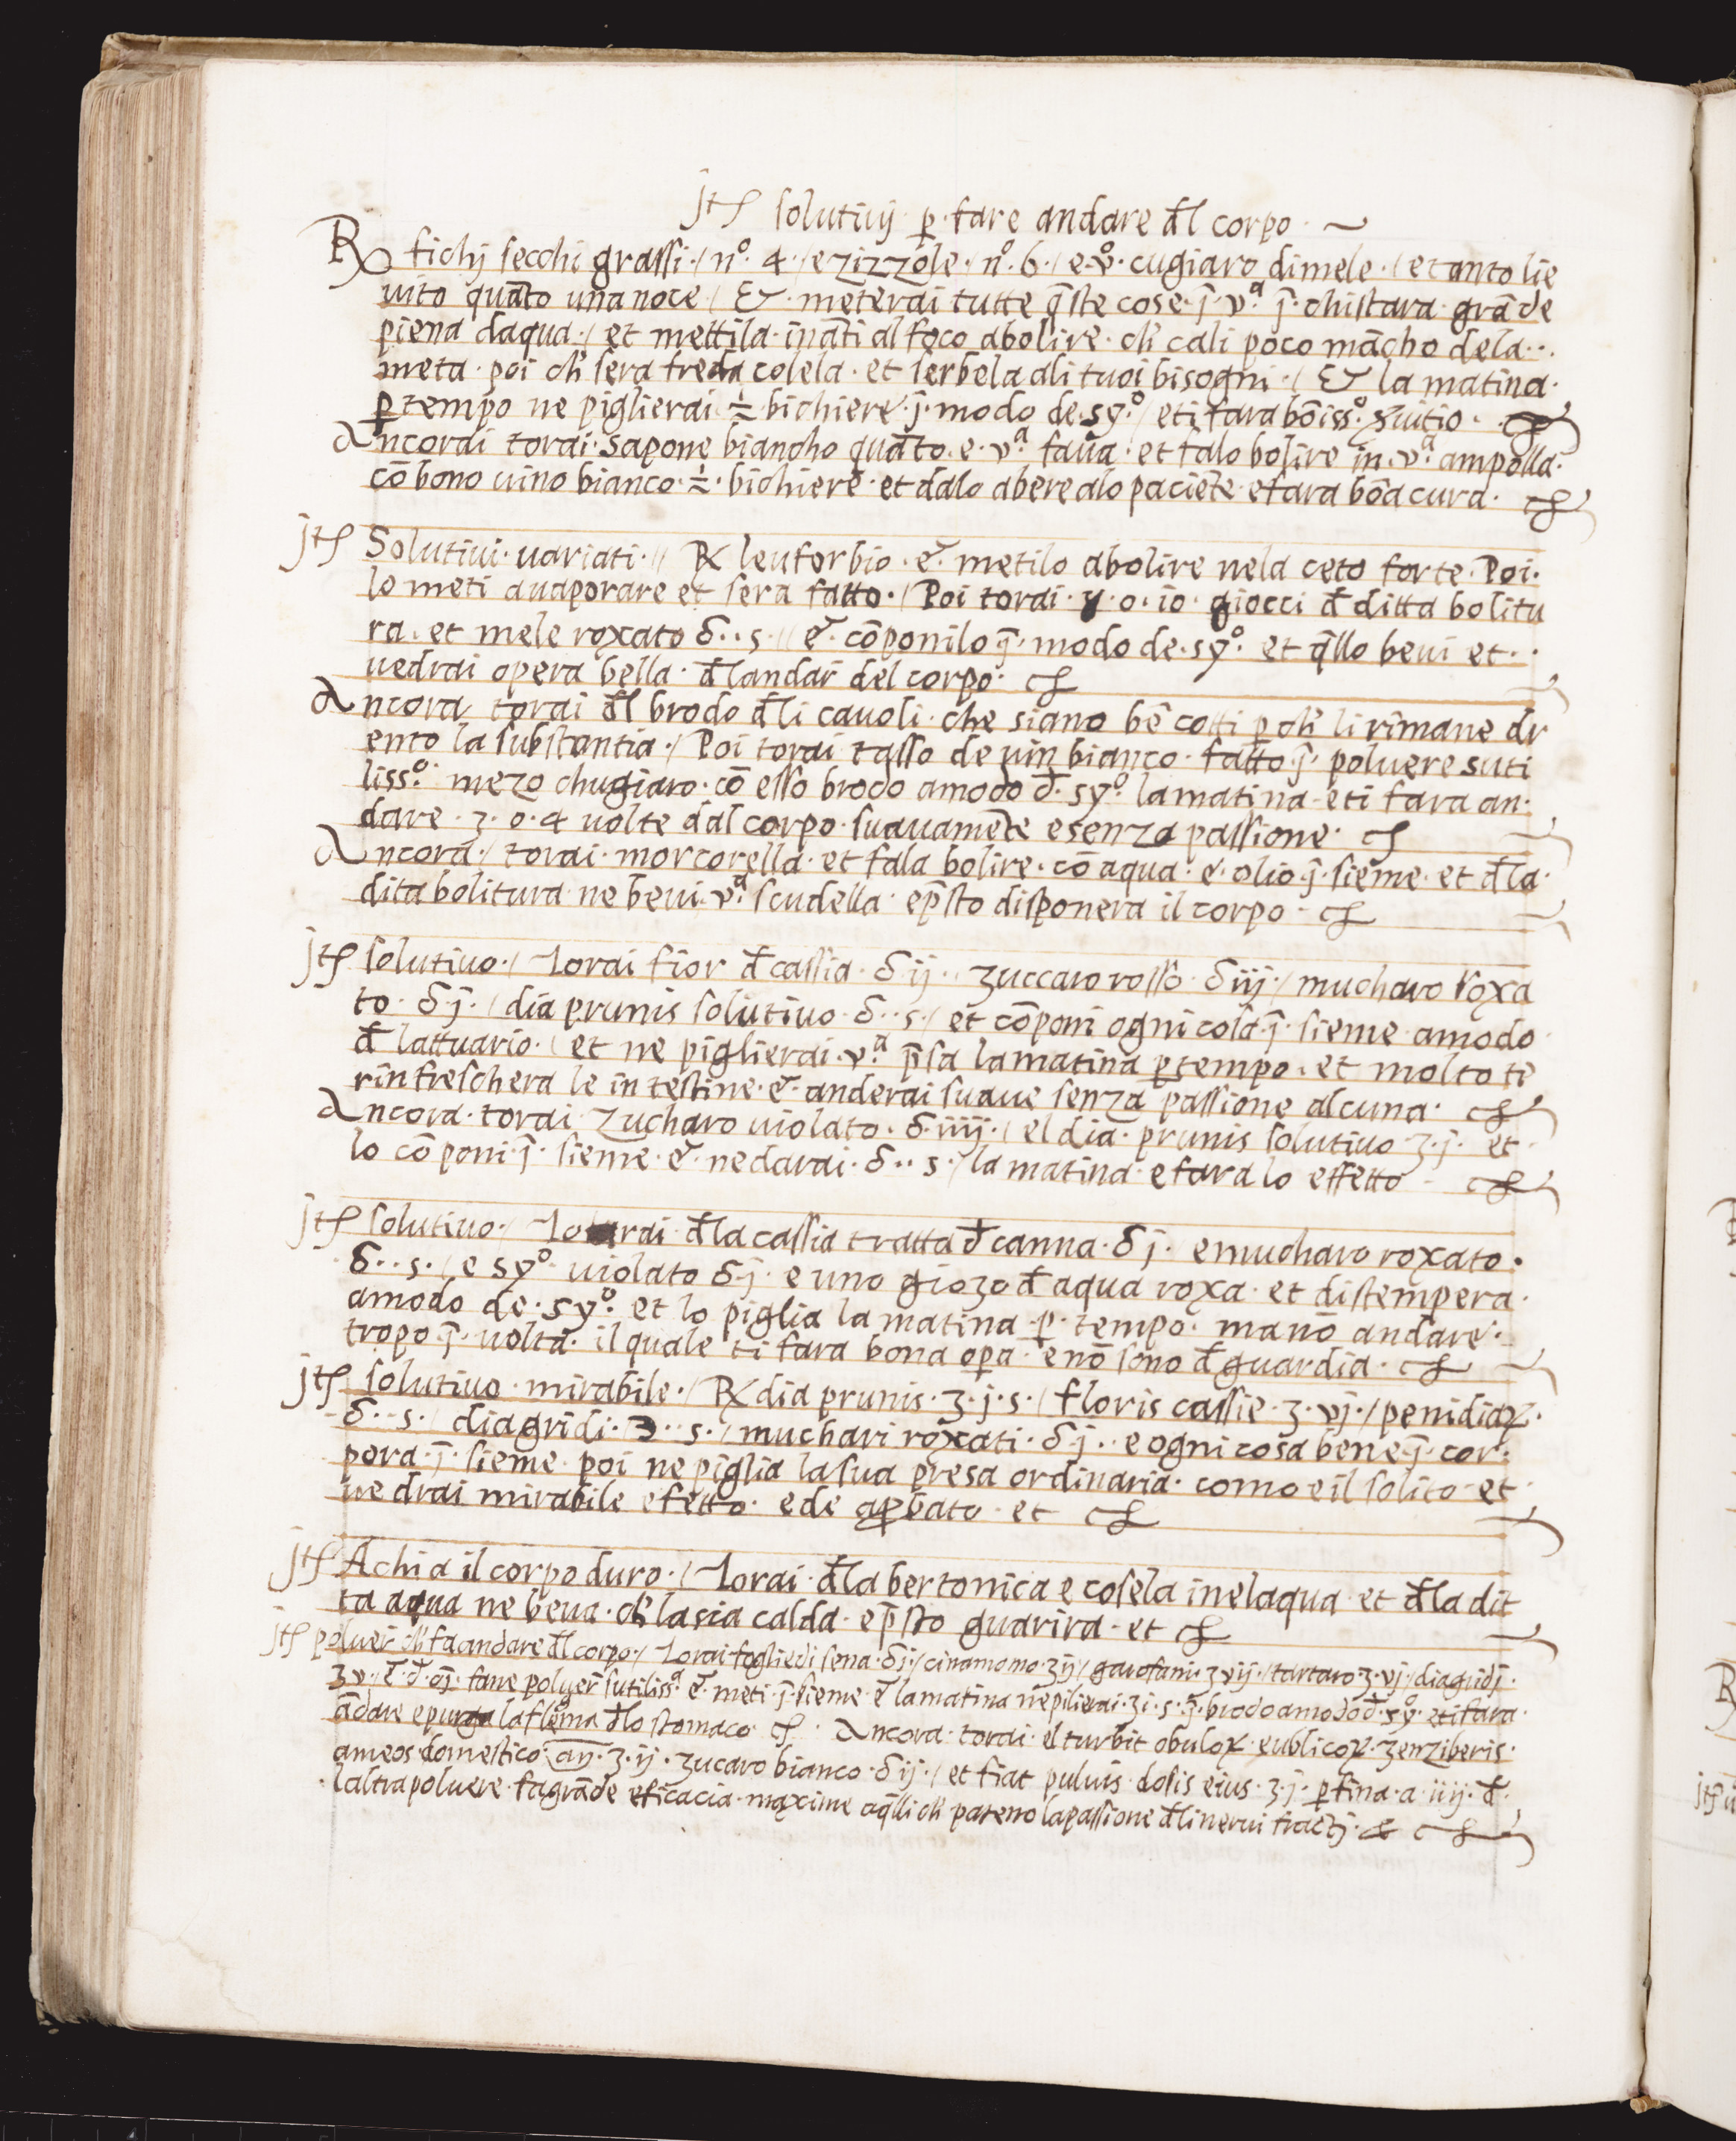 jtꝭ solutiuj ꝑ· fare andare đl corpo· ~
℞ fichj secchi grassi·/ nº· 4·/ e zizzole· nº· 6·/ e·vº· cugiaro di mele·/ et anto lie
uito quāto una noce·/ &· meterai tutte q̄ste cose· j̄· vª· j̄· ohistara· grāde
piena daqua·/ et mettila· ināti al foco abolire· ch̄ cali poco mācho dela··
meta· poi ch̄ sera freda colela· et serbela ali tuoi bisogni·/ & la matina·
ꝑ tempo ne piglierai ·½· bichiere· j̄· modo de· syº·/ eti fara bōissº·
ancorai torai· sapone biancho quāto· e· vª· faua· et falo bolire in· vª· ampolla·
cō bono uino bianco ·½· bichiere· et dalo abere alo paciēte· e fara bōa cura·
jtꝭ Solutiui· uariati·// ℞ leuforbio· &· metilo abolire nela ceto forte· Poi·
lo meti auaporare et sera fatto·/ Poi torai· · o· io· giocci đ ditta bolitu
ra· et mele roxato δ·· s·// &· cōponilo j̄· modo de· syº· et q̄llo beui et··
uedrai opera bella· đlandar del corpo·
ancora torai đl brodo đli cauoli· che siano bē cotti ꝑ ch̄ li rimane dr
ento la substantia·/ Poi torai tasso de uin bianco· fatto j̄· poluere suti
lissº· mezo chugiaro· cō esso brodo amodo đ· syº· la matina· eti fara an·
dare· 3· o· 4 uolte dal corpo· suauamēte e senza passione·
ancora·/ torai· morcorella· et fala bolire· cō aqua· &· olio· j̄· sieme· et đla·
dita bolitura· ne beui· vª· scudella· ep̄sto disponera il corpo·
jtꝭ solutiuo·/ Torai fior đ cassia· δ ij·· zuccaro rosso· δ iij·/ mucharo roxa
to· δ j·/ dia prunis solutiuo· δ·· s·/ et cōponi ogni cosa· j̄· sieme· amodo·
đ lattuario·/ et ne piglierai· vª· p̄sa la matina ꝑ tempo· et molto te
rinfreschera le in testine· &· anderai suaue senza passione alcuna·
ancora· torai zucharo uiolato· δ· iiij·/ el dia· prunis solutiuo ʒ· j· et·
lo cōponi· j̄· sieme· &· ne darai· δ·· s·/ la matina· e fara lo effetto·
jtꝭ solutiuo·/ Torai· đla cassia tratta đ canna· δ j·/ e mucharo roxato·
δ·· s·/ e syº· uiolato δ· j· e uno giozo đ aqua roxa· et distempera·
amodo de· syº· et lo piglia la matina· ꝑ· tempo· ma nō andare·
tropo j̄· uolta· il quale ti fara bona oꝑa· e nō sono đ guardia·
jtꝭ solutiuo· mirabile·/ ℞ dia prunis· ʒ· j· s·/ floris cassie· ʒ· vj·/ penidiaꝝ·
δ·· s·/ diagridi· ℈·· s·/ muchari roxati· δ· j·· e ogni cosa bene j̄· cor·
pora· j̄· sieme· poi ne piglia la sua presa ordinaria· como e il solito· et·
ue drai mirabile efetto· ede aꝓbato· et
jtꝭ Achi a il corpo duro·/ Torai· đla bertonica e cosela inelaqua· et đla dit
ta aqua ne beua· ch̄ la sia calda· ep̄sto guarira· et
jtꝭ poluer ch̄ fa andare đl corpo·/ Torai foglie di sena· δj·/ cinamomo· ʒij·/ garofani· ʒvij·/ tartaro ʒ· vj·/ diagridj·
ʒv·/ &· đ· oj· fane poluer sutilissª· &· meti· j̄· sieme· & la matina ne pilierai· ʒi· s· j̄· brodo amodo đ· syº· eti fara·
ādare e purga la flēma đlo stomaco· ancora· torai· el turbit obuloꝝ· eublicoꝝ· zenziberis·
ameos· domestico· an̄· ʒ· ij· zucaro bianco· δ ij·/ et fiat puluis· dosis eius· ʒ· j· ꝑ fina· a· iiij· đ·
laltra poluere· fa grāde eficacia· maxime aq̄lli ch̄ pateno la passione đli nerui·